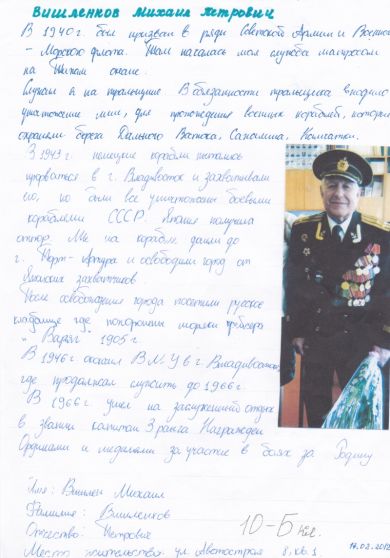 Вишленков Михаил Петрович
В 1940 г. был призван в ряды Советской Армии и Военно
- Морского флота. Там началась моя служба матросом
на Тихом океане.
Служил я на тральщике. В обязанности тральщика входило
уничтожение мин, для прохождения военных кораблей, которые
охраняли берега Дальнего Востока, Сахалина, Камчатки.
В 1943 г. немецкие корабли пытались
прорваться в г. Владивосток и захватить
его, но были все уничтожены боевыми
кораблями СССР. Япония получила
отпор. Мы на корабле дошли до
г. Порт-Артура и освободили город от
Японских захватчиков.
После освобождения города посетили русское
кладбище где похоронены моряки крейсера
"Варяг" 1905 г.
В 1946 г. окончил ВМУ в г. Владивосток,
где продолжал служить до 1966 г.
В 1966 г. ушел на заслуженный отдых
в звании капитан 3 ранга. Награжден
Орденами и медалями за участие в боях за Родину
Имя: Михаил
Фамилия: Вишленков
Отчество: Петрович
10-Б кл.
Место жительства: ул. 8, кв. 1
14.02.